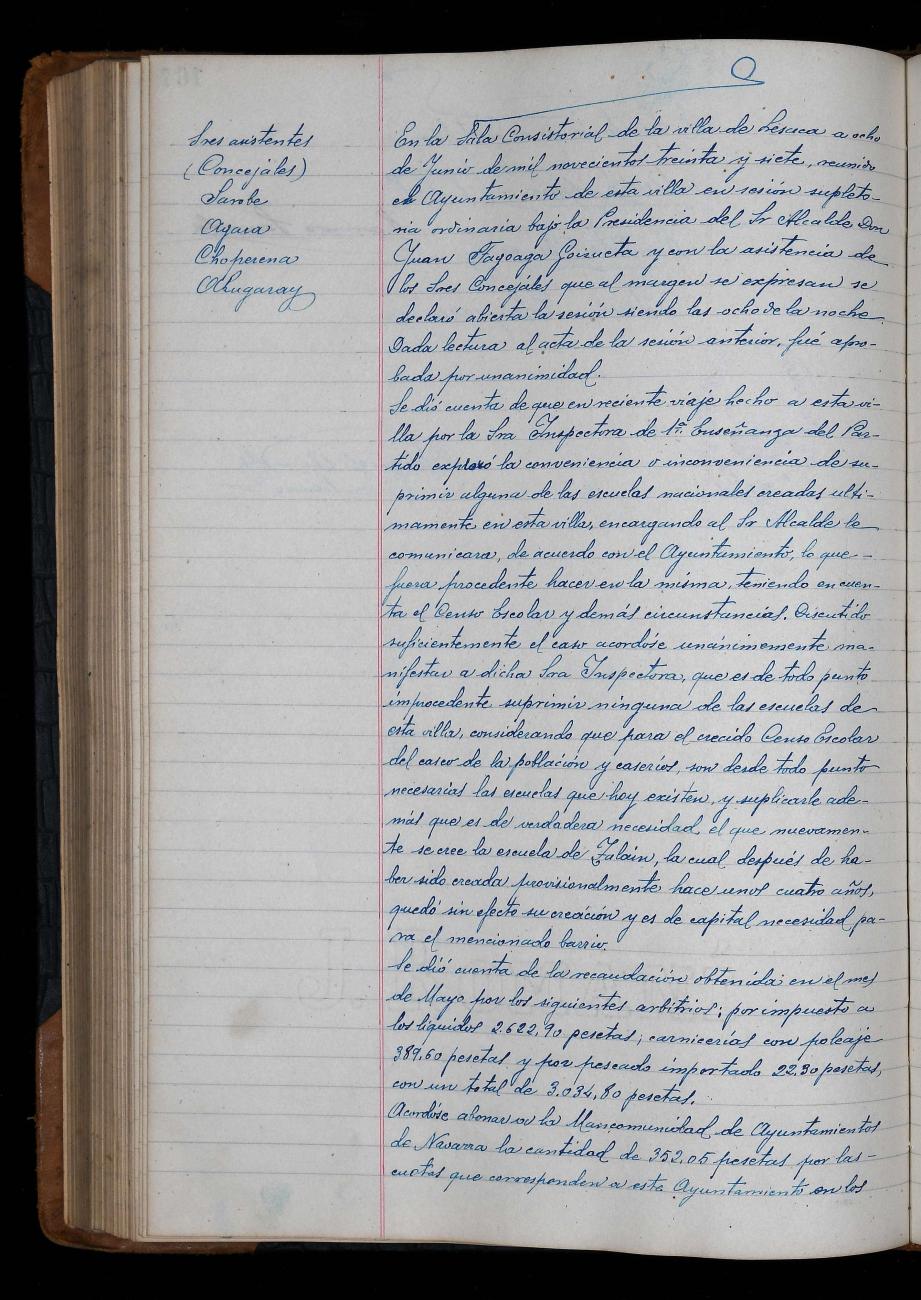 Sres asistentes
(Concejáles)
Sarobe
Ayara
Choperena
Olhagaray
En la Sala Consistorial de la villa de Lesaca a ocho
de Junio de mil novecientos treinta y siete, reunido
el Ayuntamiento de esta villa en sesión supleto-
ria ordinaria bajo la Presidencia del Sr Alcalde Don
Juan Tagoaga Goizueta y con la asistencia de
los Sres Concejáles que al margen se expresan se
declaró abierta la sesión siendo las ocho de la noche.
Dada lectura al acta de la sesión anterior, fué apro-
bada por unanimidad.
Se dió cuenta de que en reciente viaje hecho a esta vi-
lla por la Sra Inspectora de 1ª Enseñanza del Par-
tido exploró la conveniencia o inconveniencia de su-
primir alguna de las escuelas nacionales creadas ulti-
mamente en esta villa, encargando al Sr Alcalde le
comunicara, de acuerdo con el Ayuntamiento, lo que -
fuera procedente hacer en la misma, teniendo en cuen-
ta el Censo Escolar y demás circunstancias. Discutido
suficientemente el caso acordóse unánimemente ma-
nifestar a dicha Sra Inspectora, que es de todo punto
improcedente suprimir ninguna de las escuelas de
esta villa, considerando que para el crecido Censo Escolar
del casco de la población y caseríos, son desde todo punto
necesarias las escuelas que hoy existen, y suplicarle ade-
más que es de verdadera necesidad, el que nuevamen-
te se cree la escuela de Zalain, la cual después de ha-
ber sido creada provisionalmente hace unos cuatro años,
quedó sin efecto su creación y es de capital necesidad pa-
ra el mencionado barrio.
Se dió cuenta de la recaudación obtenida en el mes
de Mayo por los siguientes arbitrios; por impuesto a
los líquidos 2.622,90 pesetas; carnicerías con poleaje
389,60 pesetas y por pescado importado 22,30 pesetas,
con un total de 3.034,80 pesetas.
Acordóse abonar a la Mancomunidad de Ayuntamientos
de Navarra la cantidad de 352,05 pesetas por las -
cuotas que corresponden a este Ayuntamiento en los